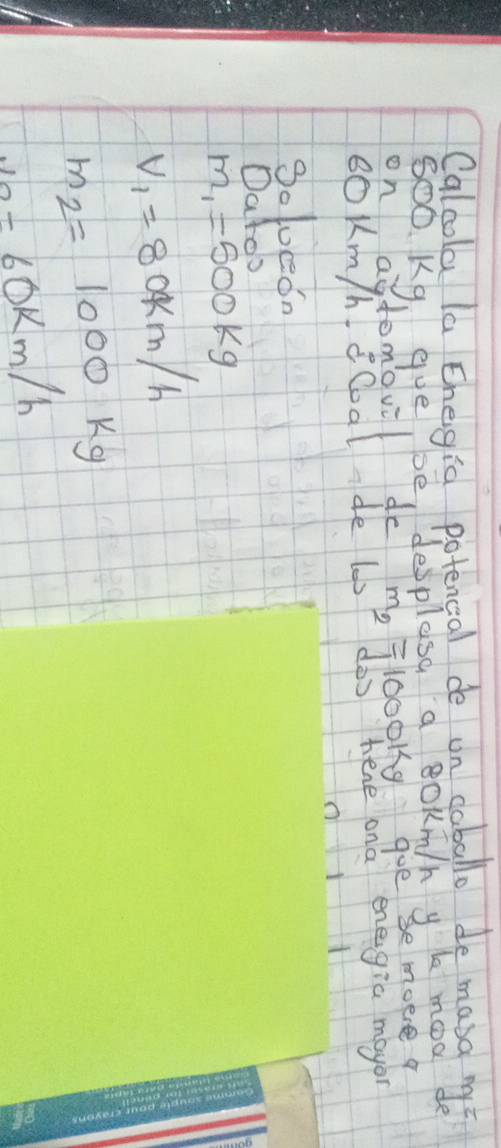 Calcola la Energía potencial de un caballo de masa m₁=
500 Kg que se desplasa a 80Km/h y la masa de
un aytomovil de m₂=1000Kg que se mueve a
60 Km/h. ¿Cual de los dos tiene una energía mayor
Solución
Datos
m₁=500Kg
v₁=80Km/h
m₂= 1000 Kg
v₂=60Km/h
Gomme souple pour crayons